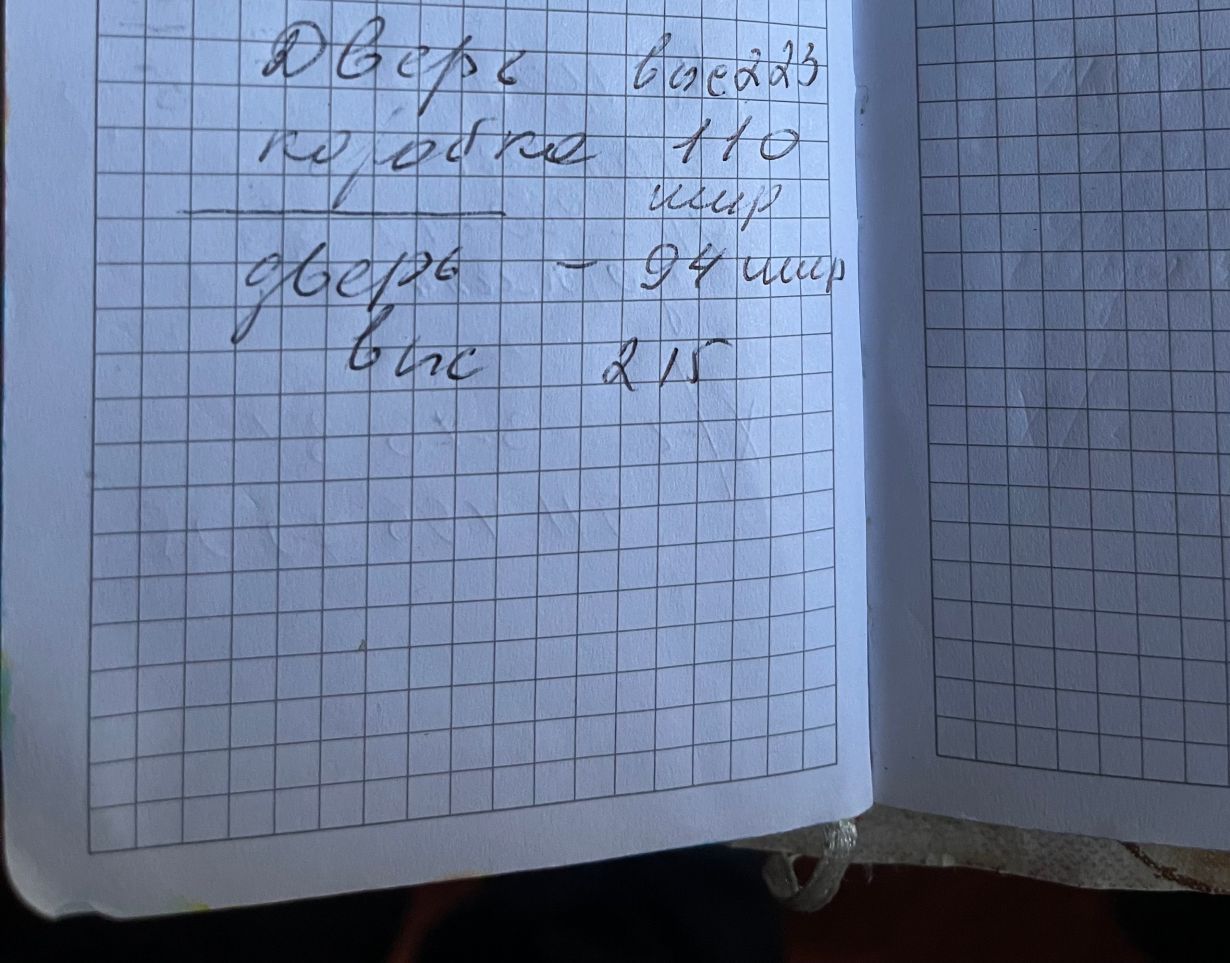 Дверь выс 223
коробка 110
шир
дверь - 94 шир
выс 215